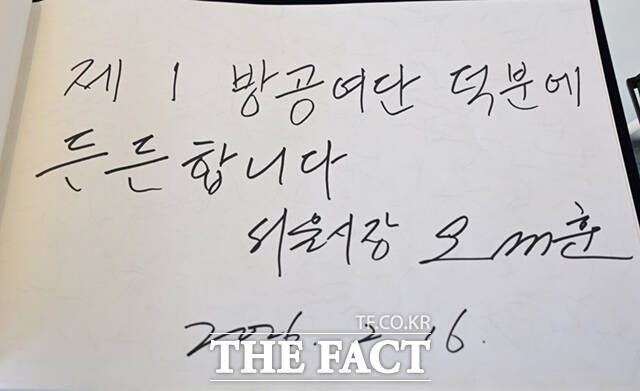 제 1 방공여단 덕분에
든든합니다
서울시장 오세훈
2026. 2. 16.
TF.CO.KR
THE FACT